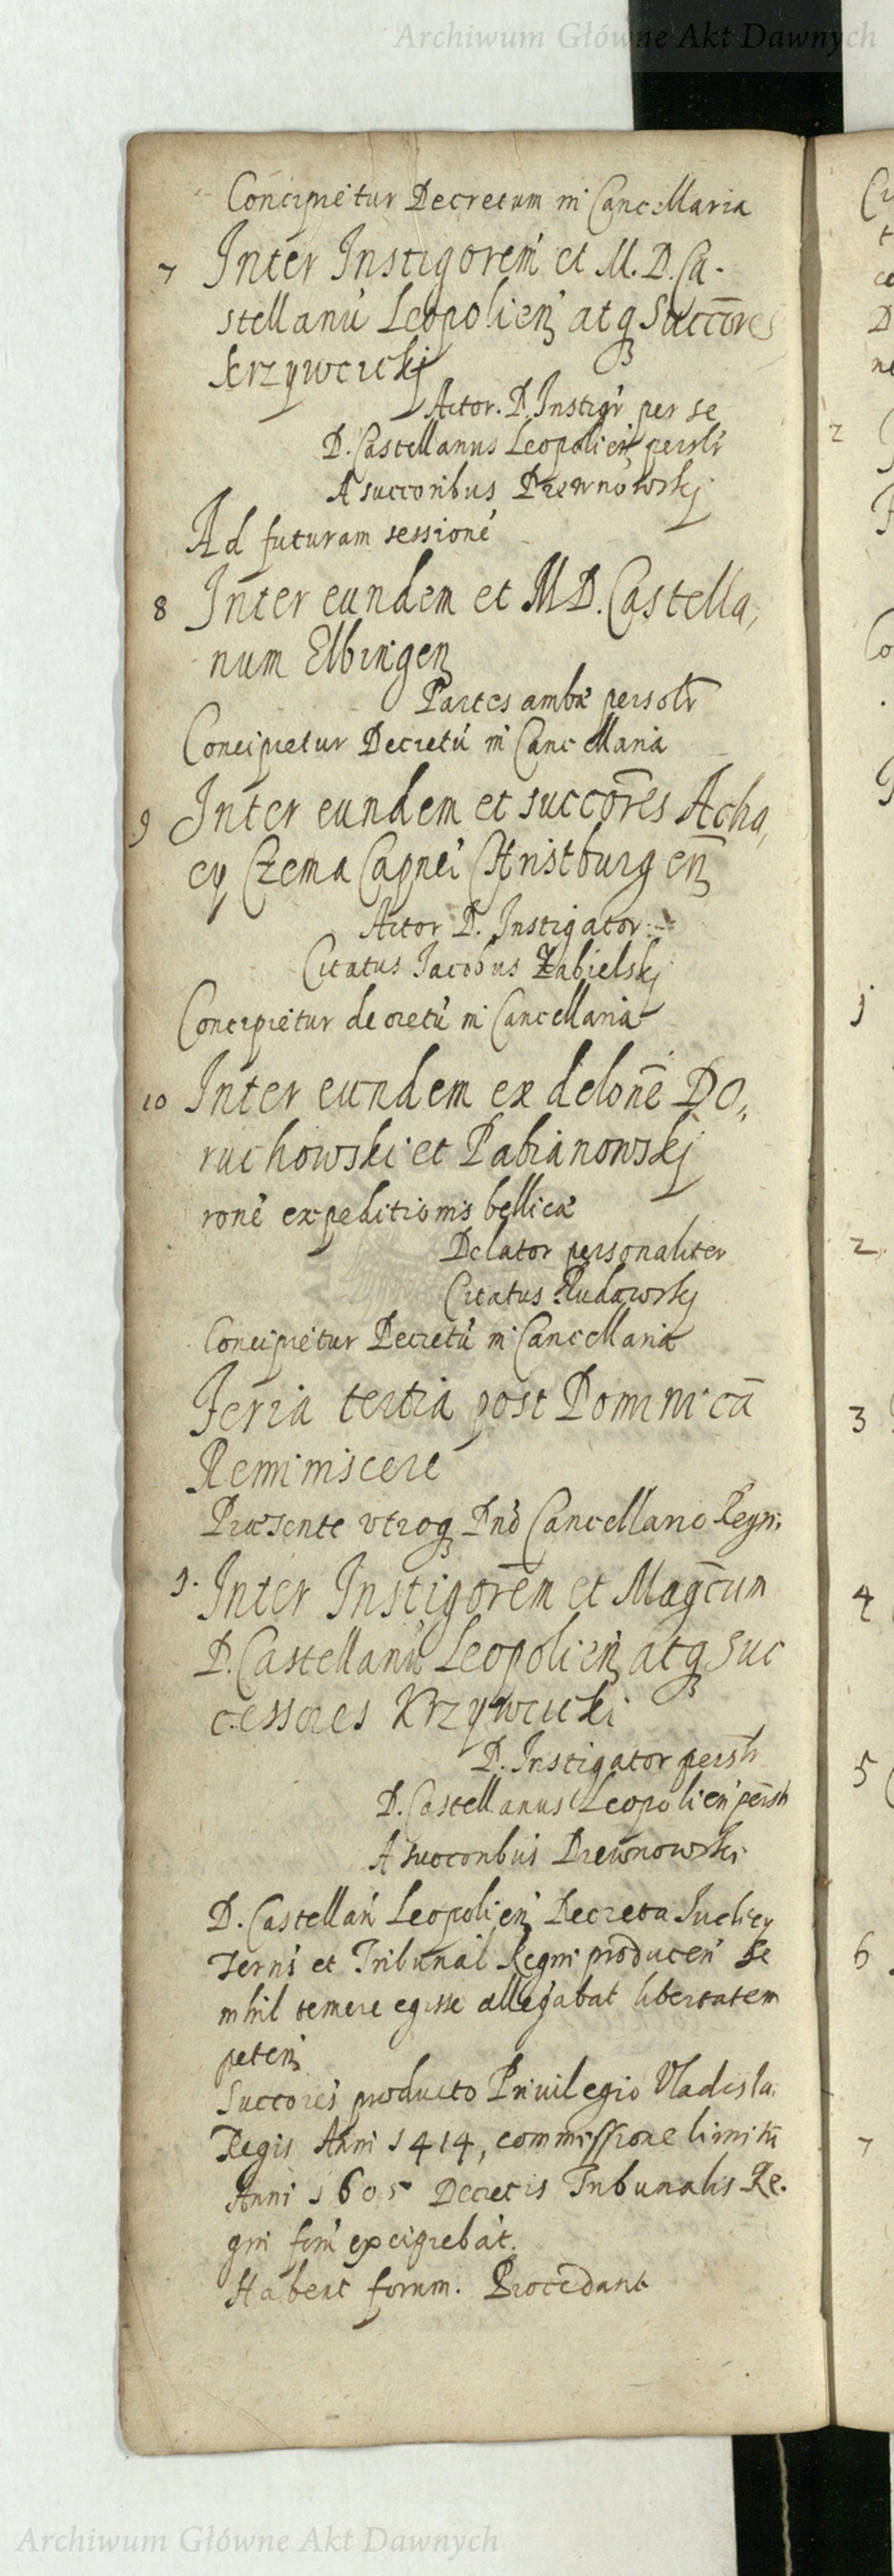 Archiwum Główne Akt Dawnych
Concipietur Decretum in Cancellaria
7 Inter Instigorem et M. D. Ca-
stellanū Leopolien atq Succōres
Krzywcickj
Actor. D. Instigr per se
D. Castellanus Leopolien persłr
A succoribus Drewnowskj
Ad futuram sessionē
8 Inter eundem et M D. Castella,
num Elbingen
Partes ambæ persolr
Concipietur Decretū in Cancellaria
9 Inter eundem et succōres Acha,
cy Czema Capnei Christburgen
Actor D. Instigator
Citatus Jacobus Zabielskj
Concipietur decretū in Cancellaria
10 Inter eundem ex delonē Do,
ruchowski et Pabianowskj
ronē expeditionis bellicæ
Delator personaliter
Citatus Rudawskj
Concipietur Decretū in Cancellaria
Feria tertia post Dominicā
Reminiscere
Præsente vtroq Dnō Cancellario Regni
1. Inter Instigorēm et Magcum
D. Castellanū Leopolien atq Suc
cessores Krzywcicki
D. Instigator persłr
D. Castellanus Leopolien persłr
A succoribus Drewnowski
D. Castellan Leopolien Decreta Iudicy
Terris et Tribunal Regni producen se
nihil temere egisse allegabat libertatem
peten
Succores producto Priuilegio Vladislai
Regis Anni 1414, commissione limitū
Anni 1605 Decretis Tribunalis Re-
gni fori excipiebāt.
Habent forum. Procedant
2
3
4
5
6
7
Archiwum Główne Akt Dawnych